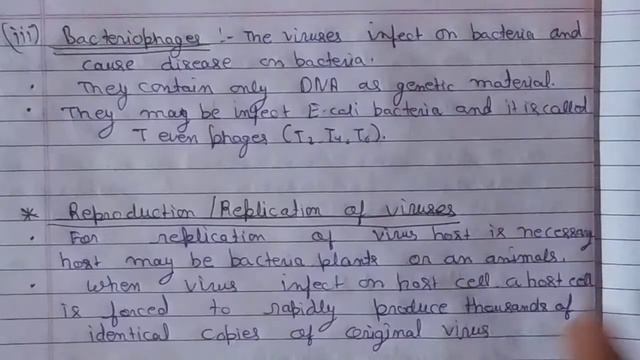 (iii) Bacteriophages :- The viruses infect on bacteria and
cause disease on bacteria.
• They contain only DNA as genetic material.
• They may be infect E-coli bacteria and it is called
T even phages (T2, T4, T6).
* Reproduction / Replication of viruses
• For replication of virus host is necessary
host may be bacteria plants or an animals.
• when virus infect on host cell a host cell
is forced to rapidly produce thousands of
identical copies of original virus